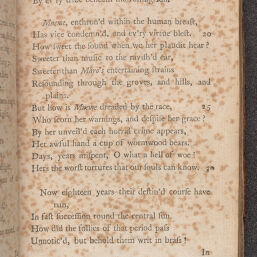 By ev'ry tribe beneath the rolling sun.
Mneme, enthron'd within the human breast,
Has vice condemn'd, and ev'ry virtue blest. 20
How sweet the sound when we her plaudit hear?
Sweeter than music to the ravish'd ear,
Sweeter than Maro's entertaining strains
Resounding through the groves, and hills, and
plains.
But how is Mneme dreaded by the race, 25
Who scorn her warnings, and despise her grace?
By her unveil'd each horrid crime appears,
Her awful hand a cup of wormwood bears.
Days, years mispent, O what a hell of woe!
Hers the worst tortures that our souls can know. 30
Now eighteen years their destin'd course have
run,
In fast succession round the central sun.
How did the follies of that period pass
Unnotic'd, but behold them writ in brass!
In